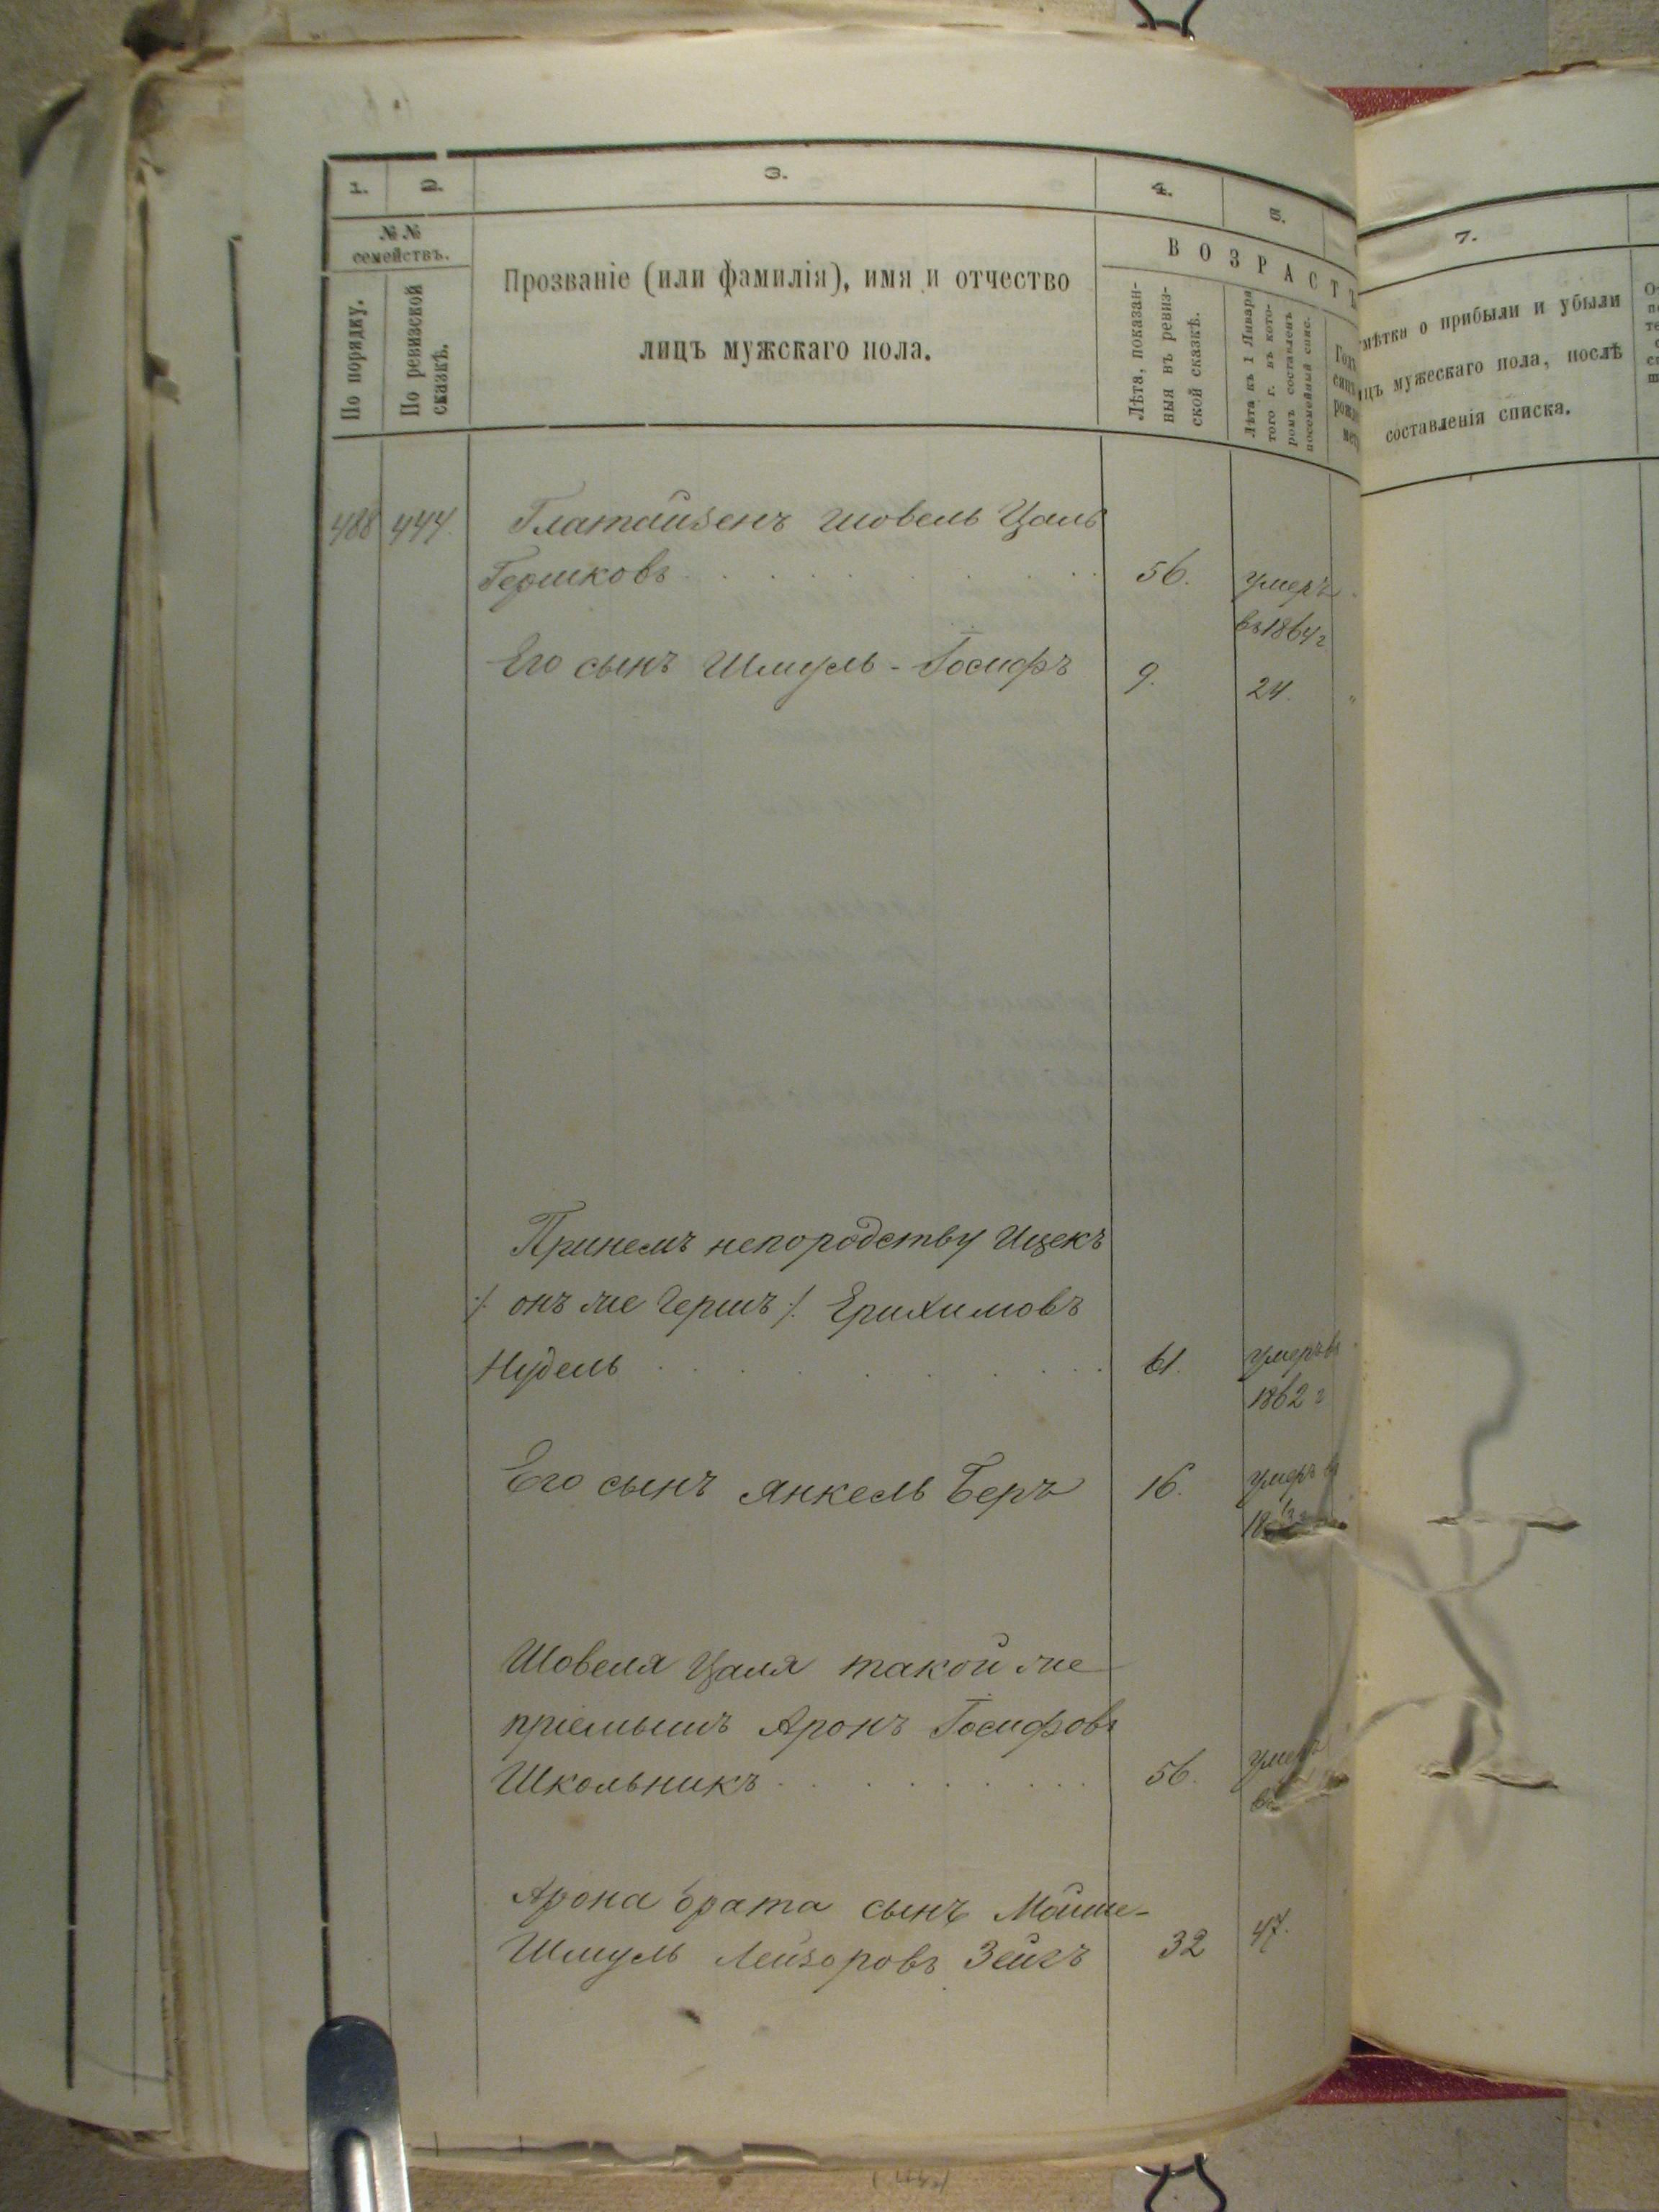 1.
2.
3.
4.
5.
№ №
семействъ.
По порядку.
По ревизской
сказкѣ.
Прозваніе (или фамилія), имя и отчество
лицъ мужскаго пола.
ВОЗРАСТЪ
Лѣта, показан-
ныя въ ревиз-
ской сказкѣ.
Лѣта къ 1 Января
того г. въ кото-
ромъ составленъ
посемейный спис.
7.
мѣтка о прибыли и убыли
ицъ мужескаго пола, послѣ
составленія списка.
488 444 Глатайзенъ Шовель Цаль
Гершковъ 56. умеръ
въ 1864 г
Его сынъ Шмуль-Іосифъ 9. 24.
При немъ непородству Ицекъ
/. онъ же Гершъ /. Ерихимовъ
Нудель 61. умеръ въ
1862 г
Его сынъ Янкель Беръ 16. умеръ въ
Шовеля Цаля такой же
пріемышъ Аронъ Іосифовъ
Школьникъ 56. умеръ
Арона брата сынъ Мойше-
Шмуль Лейзоровъ Зейгъ 32 47.